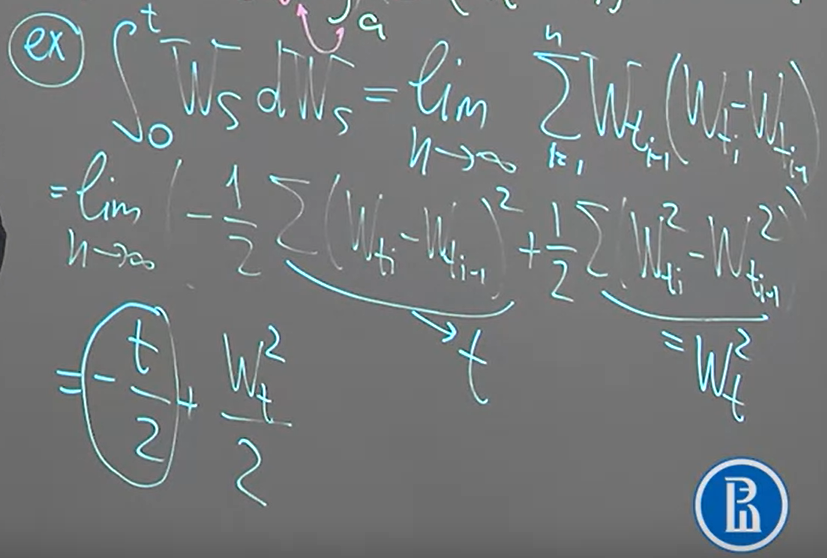 ex ∫₀ᵗ W_s dW_s = lim_{n→∞} Σ_{k=1}^{n} W_{t_{i-1}} (W_{t_i} - W_{t_{i-1}})
= lim_{n→∞} ( - 1/2 Σ (W_{t_i} - W_{t_{i-1}})² + 1/2 Σ (W²_{t_i} - W²_{t_{i-1}}) )
→ t = W_t²
= - t/2 + W_t²/2